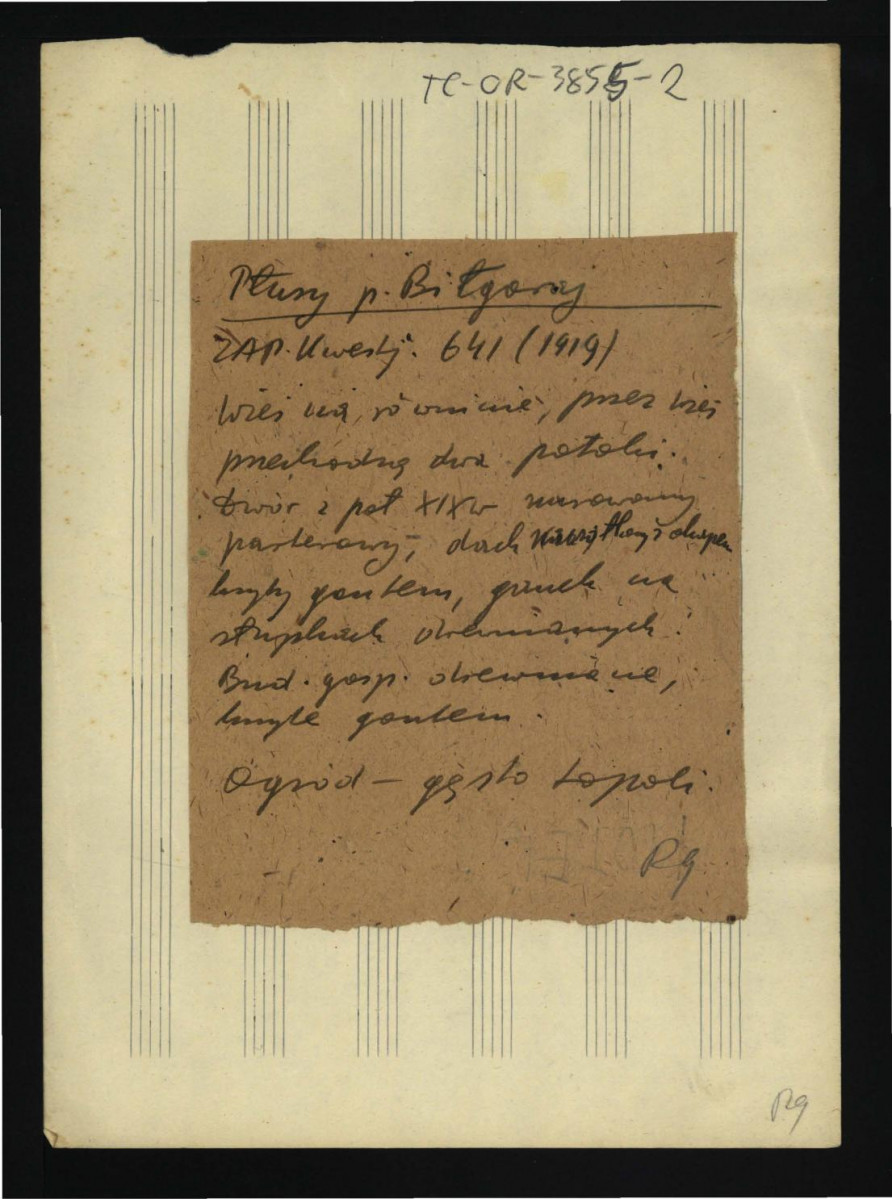 TC-OR-3855-2
Płusy p. Biłgoraj
ZAP. Kwestj. 641 (1919)
Wieś na równinie, przez wieś
przechodzą dwa potoki.
Dwór z poł XIXw murowany
parterowy, dach z okapem
kryty gontem, ganek na
słupkach drewnianych.
Bud. gosp. drewniane,
kryte gontem.
Ogród – gęsto topoli.
Rg
Rg